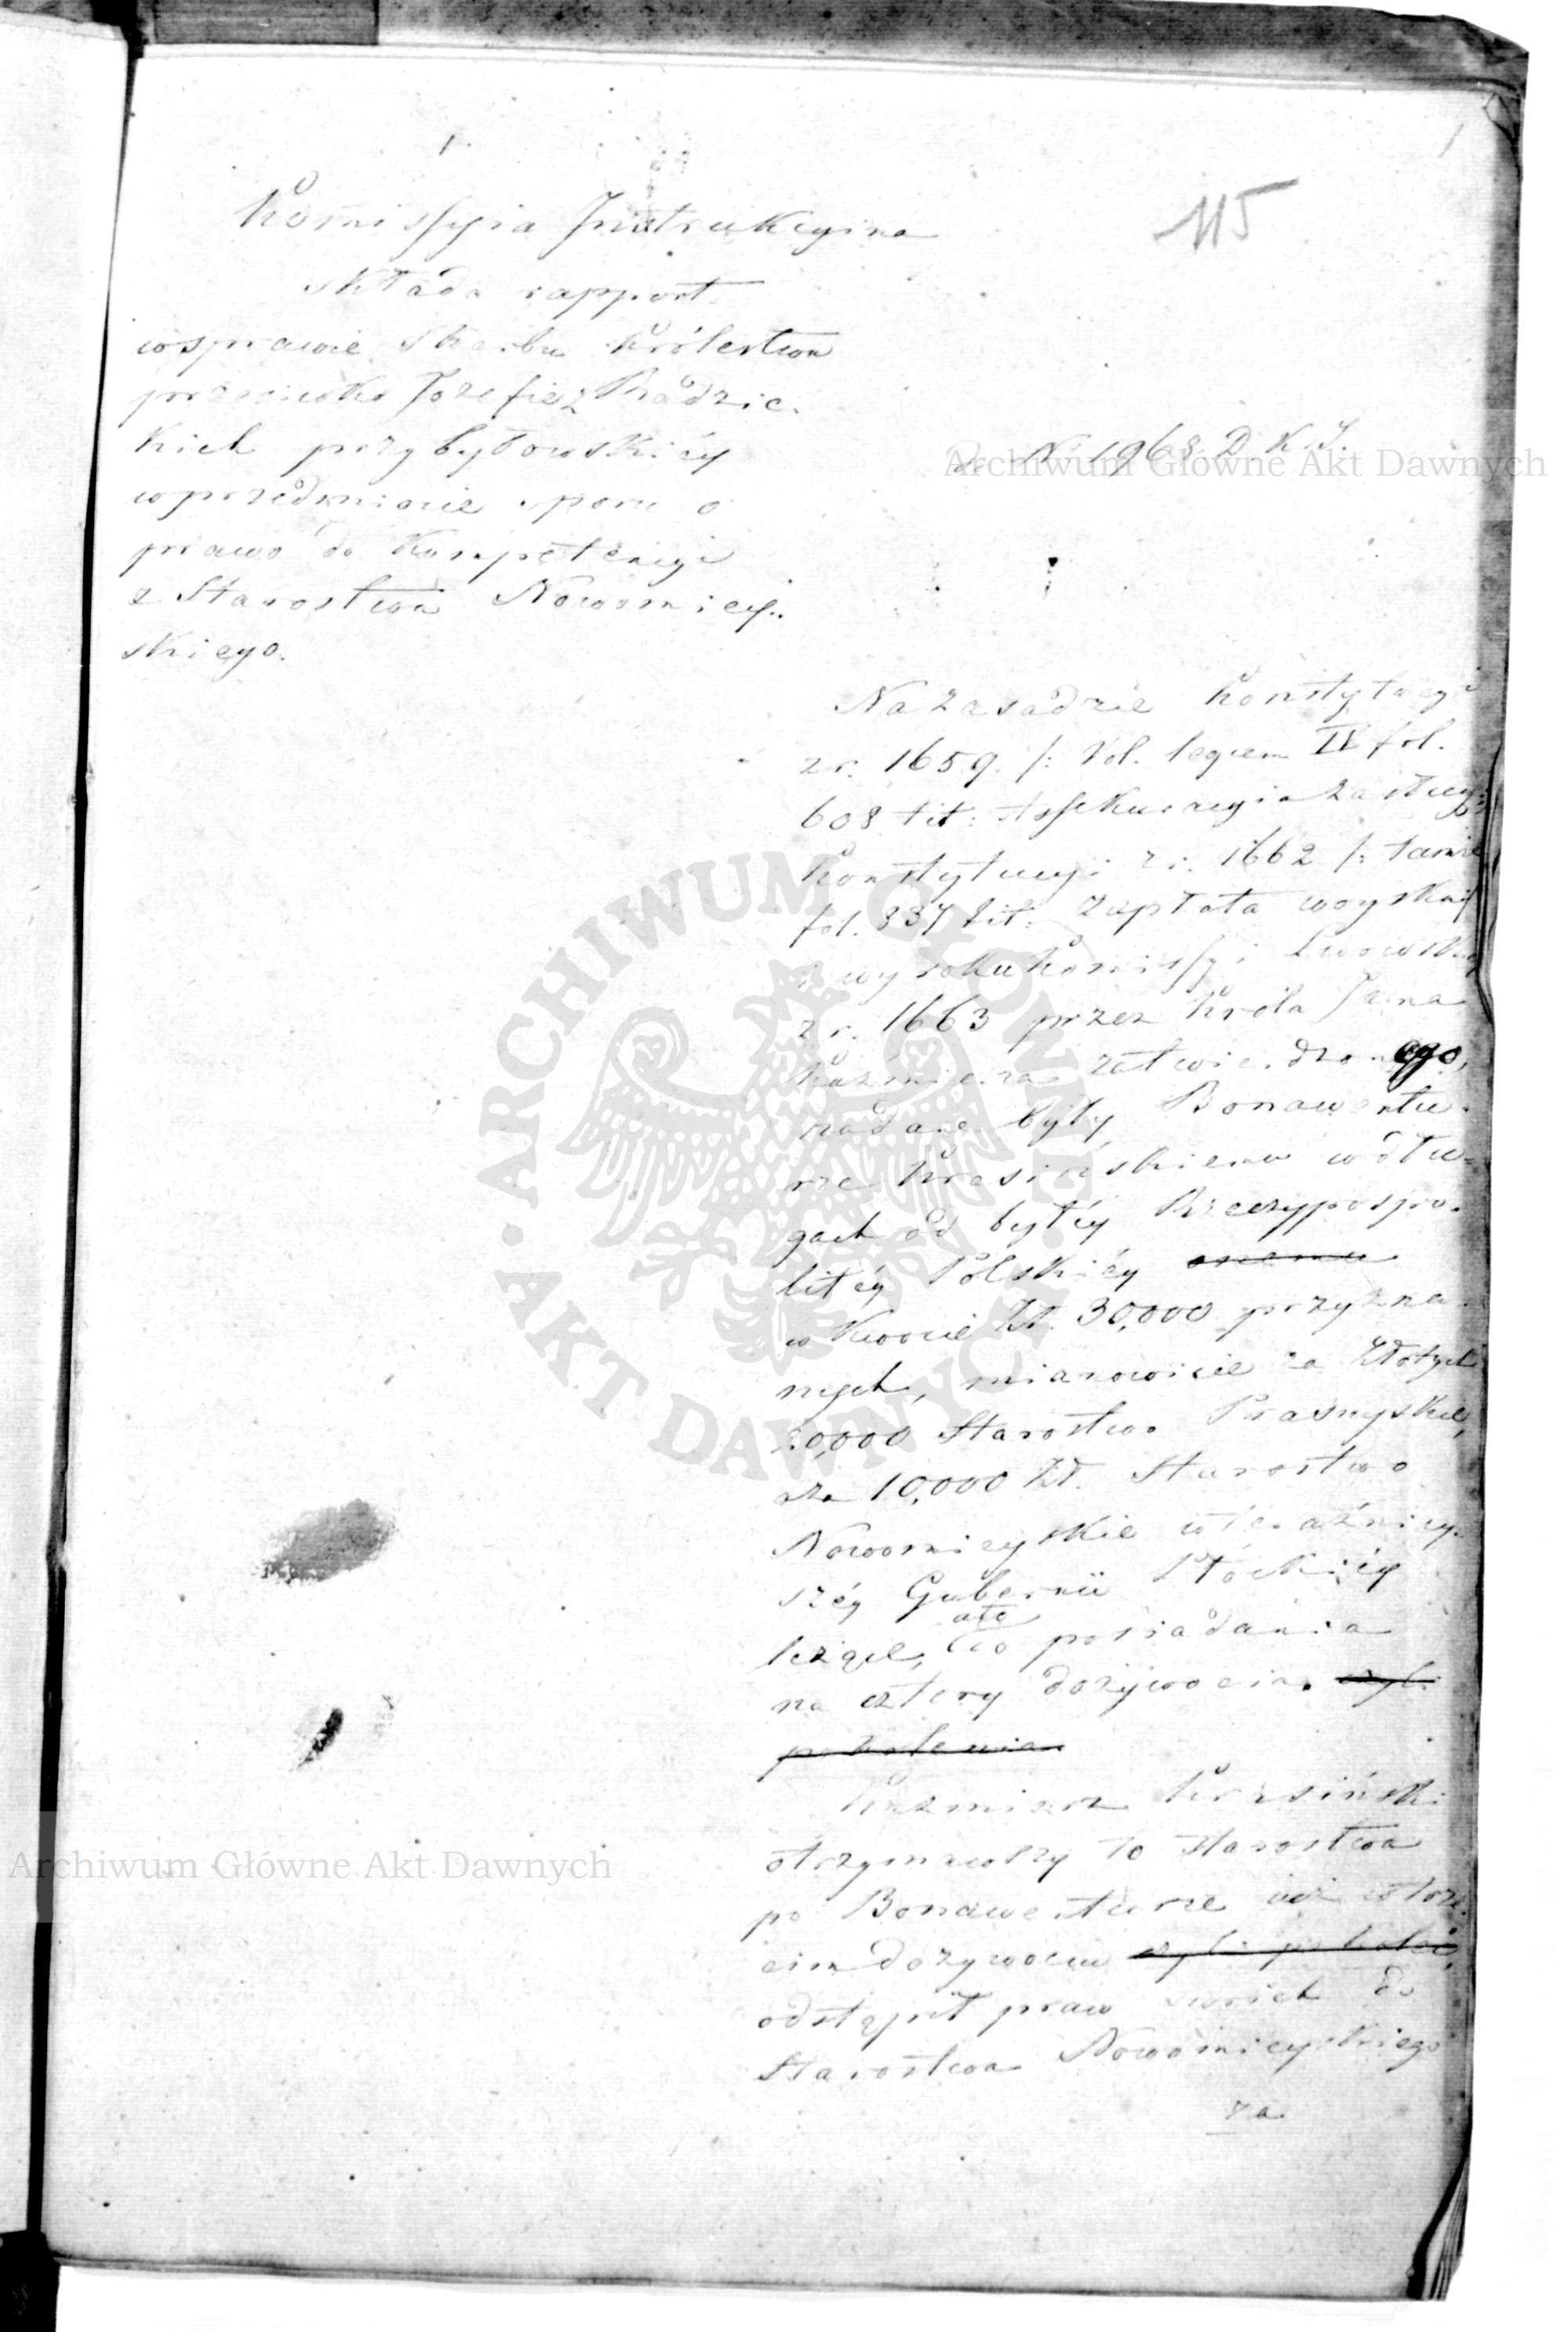 1.
1
115
Kommissyia Instrukcyina
składa rapport
w sprawie Skarbu Królestwa
przeciwko Jozefie z Radzic.
kich Przybyłowskiéy
w przedmiocie sporu o
prawo do Kompetencyi
z Starostwa Nowomiey.
skiego.
N. 1968 D. K. I.
Na zasadzie Konstytucyi
z r. 1659. /: Vol. legum IV fol.
608 tit: Assekuracyia
Konstytucyi z r. 1662 /: tamże
fol. 837 tit: Zapłata woysku
i wyroku Kommissyi Lwowskiey
z r. 1663 przez Króla Jana
Kaźmierza zatwierdzonego,
nadane były Bonawentu.
rze Krasińskiemu w dłu.
gach od byłéy Rzeczypospo.
litéy Polskiéy onemu
w kwocie Zł. 30,000 przyzna.
nych, mianowicie za Złotych
20,000 Starostwo Prasnyskie,
a za 10,000 Zł. Starostwo
Nowomieyskie w teraźniey.
széy Gubernii Płockiéy
leżące, ato
do posiadania
na cztery dożywocia. czyli
pokolenia
Kaźmierz Krasiński
otrzymawszy to Starostwa
po Bonawenturze
dożywociu czyli
odstąpił praw swoich do
Starostwa Nowomieyskiego
za
Archiwum Główne Akt Dawnych
Archiwum Główne Akt Dawnych
ARCHIWUM GŁÓWNE
AKT DAWNYCH